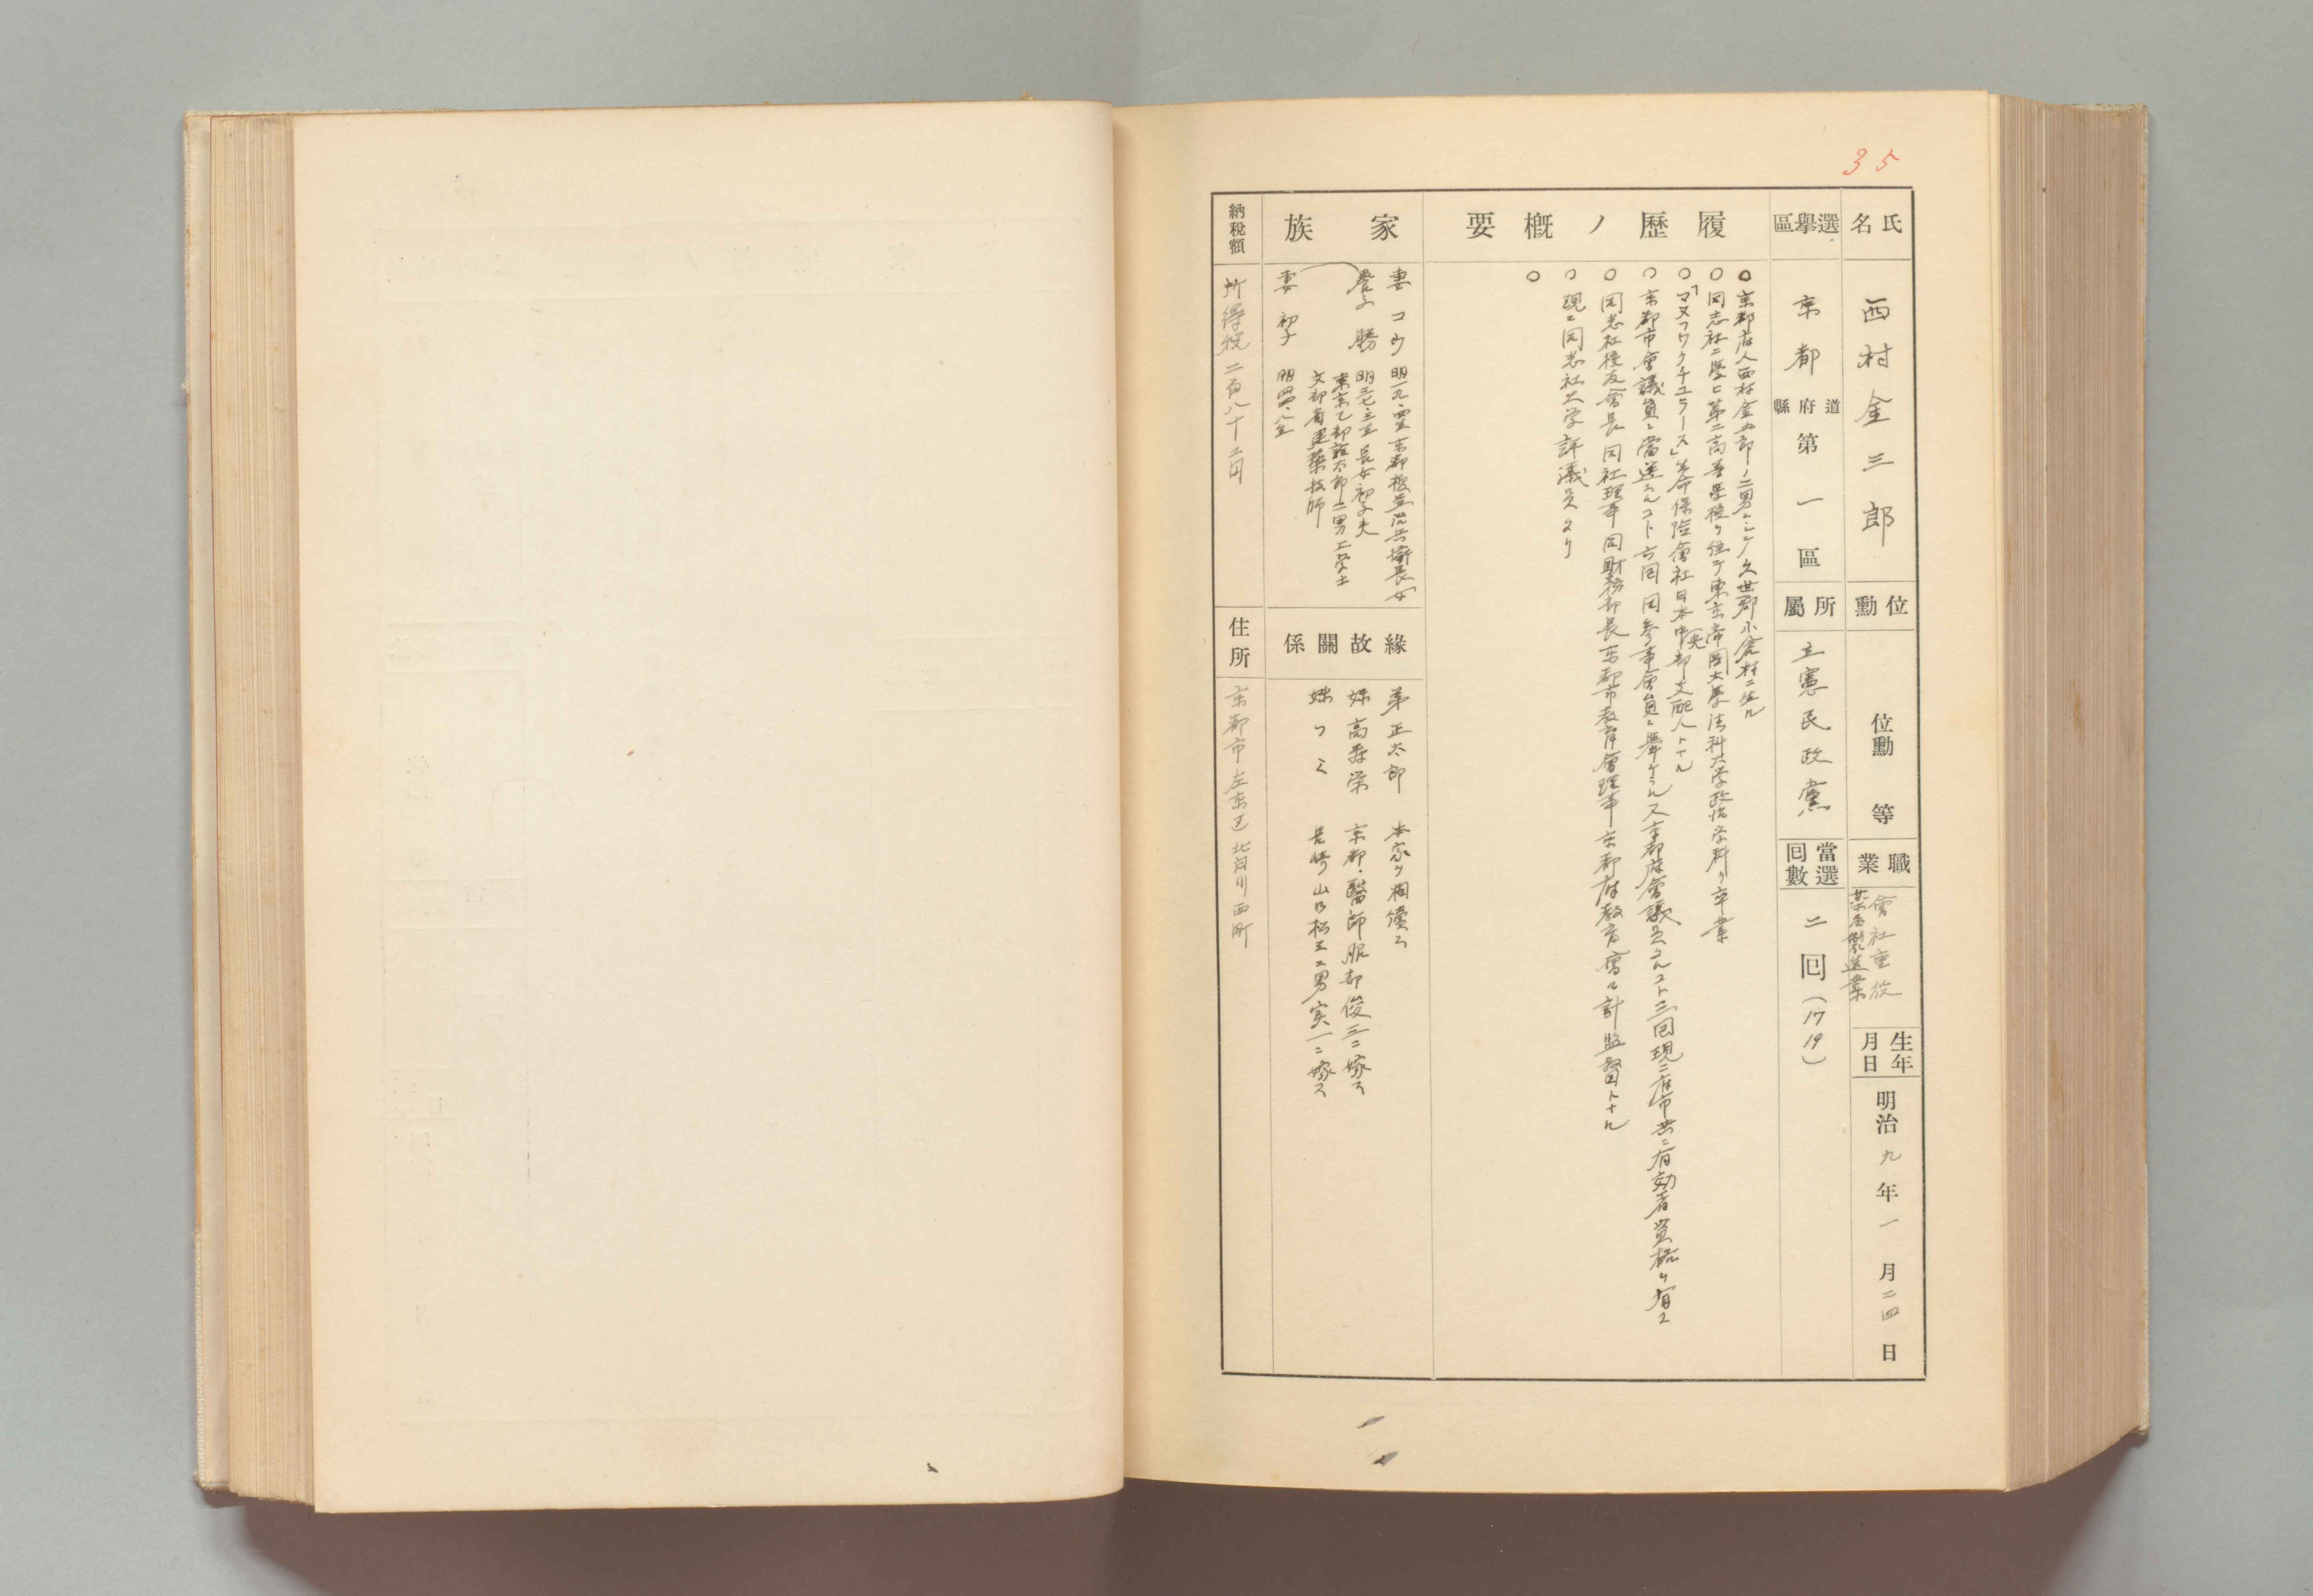 35
氏名
西村金三郎
位勲
位勲 等
職業
會社重役
茶壺製造業
生年月日
明治九年一月二四日
選擧區
京都 道府縣 第一區
所屬
立憲民政黨
當選回數
二回(17 19)
履歴ノ概要
○京都府人西村金五郎ノ二男ニシテ久世郡小倉村ニ生ル
○同志社ニ學ヒ第二高等學校ヲ経テ東京帝國大學法科大学政治学科ヲ卒業
○「マヌフワクチユラース」生命保険會社日本中央部支配人トナル
○京都市會議員ニ當選スルコト六回 同参事會員ニ擧ケラル 又京都府會議員タルコト三回現ニ府市共ニ有効者資格ヲ有ス
○同志社校友會長 同社理事 同財務部長 京都市教育會理事 京都府教育會会計監督トナル
○現ニ同志社大学評議員タリ
○
家族
妻 コウ 明一九、四生 京都 長女
養子 勝 明三七、三生 長女初子夫
東京 二男工学士
文部省建築技師
妻 初子 明四四、八生
緣故關係
弟 正太郎 本家ヲ相續ス
妹 高壽栄 京都・醫師服部俊三ニ嫁ス
妹 フミ 長崎 山口松三二男実一ニ嫁ス
納税額
所得税 二百八十二円
住所
京都市左京区北白川西町